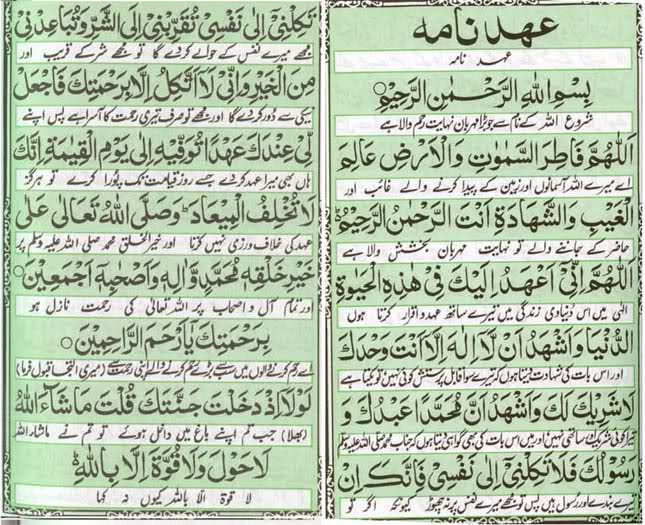 عہد نامہ
عہد نامہ
بِسْمِ اللهِ الرَّحْمٰنِ الرَّحِيْمِ
شروع اللہ کے نام سے جو بڑا مہربان نہایت رحم والا ہے
اَللّٰهُمَّ فَاطِرَ السَّمٰوٰتِ وَالْاَرْضِ عَالِمَ
اے میرے اللہ آسمانوں اور زمین کے پیدا کرنے والے غائب اور
الْغَيْبِ وَالشَّهَادَةِ اَنْتَ الرَّحْمٰنُ الرَّحِيْمُ
حاضر کے جاننے والے تو نہایت مہربان بخشش والا ہے
اَللّٰهُمَّ اِنِّيْ اَعْهَدُ اِلَيْكَ فِيْ هٰذِهِ الْحَيٰوةِ
الٰہی میں اس دنیاوی زندگی میں تیرے ساتھ عہد و اقرار کرتا ہوں
الدُّنْيَا وَاَشْهَدُ اَنْ لَّا اِلٰهَ اِلَّا اَنْتَ وَحْدَكَ
اور اس بات کی شہادت دیتا ہوں کہ تیرے سوا قابل پرستش کوئی نہیں تو یکتا ہے
لَا شَرِيْكَ لَكَ وَاَشْهَدُ اَنَّ مُحَمَّدًا عَبْدُكَ وَ
تیرا کوئی شریک و ساتھی نہیں اور میں اس بات کی بھی گواہی دیتا ہوں کہ جناب محمد صلی اللہ علیہ وسلم
رَسُوْلُكَ فَلَا تَكِلْنِيْ اِلٰى نَفْسِيْ فَاِنَّكَ اِنْ
تیرے بندے اور رسول ہیں پس تو مجھے میرے نفس پر نہ چھوڑ کیونکہ اگر تو
تَكِلْنِيْ اِلٰى نَفْسِيْ تُقَرِّبْنِيْ اِلَى الشَّرِّ وَتُبَاعِدْنِيْ
مجھے میرے نفس کے حوالے کر دے گا تو مجھے شر کے قریب اور
مِنَ الْخَيْرِ وَاِنِّيْ لَا اَتَّكِلُ اِلَّا بِرَحْمَتِكَ فَاجْعَلْ
نیکی سے دور کر دے گا اور مجھے تو صرف تیری رحمت کا آسرا ہے پس اپنے
لِّيْ عِنْدَكَ عَهْدًا تُوَفِّيْهِ اِلٰى يَوْمِ الْقِيٰمَةِ اِنَّكَ
ہاں بھی میرا عہد کر دے جسے روز قیامت تک پورا کرے تو ہرگز
لَا تُخْلِفُ الْمِيْعَادَ وَصَلَّى اللهُ تَعَالٰى عَلٰى
عہد کی خلاف ورزی نہیں کرتا اور خیر الخلق محمد صلی اللہ علیہ وسلم پر
خَيْرِ خَلْقِهٖ مُحَمَّدٍ وَّاٰلِهٖ وَاَصْحٰبِهٖ اَجْمَعِيْنَ
اور تمام آل و اصحاب پر اللہ تعالٰی کی رحمت نازل ہو
بِرَحْمَتِكَ يَا اَرْحَمَ الرَّاحِمِيْنَ
اے رحم کرنے والوں میں سب سے بڑے رحم کرنے والے اپنی رحمت سے (میری التجا قبول فرما)
لَوْلَا اِذْ دَخَلْتَ جَنَّتَكَ قُلْتَ مَا شَآءَ اللهُ
(بھلا) جب تم اپنے باغ میں داخل ہوئے تو تم نے ماشاء اللہ
لَا حَوْلَ وَلَا قُوَّةَ اِلَّا بِاللهِ
لا قوۃ الا باللہ کیوں نہ کہا